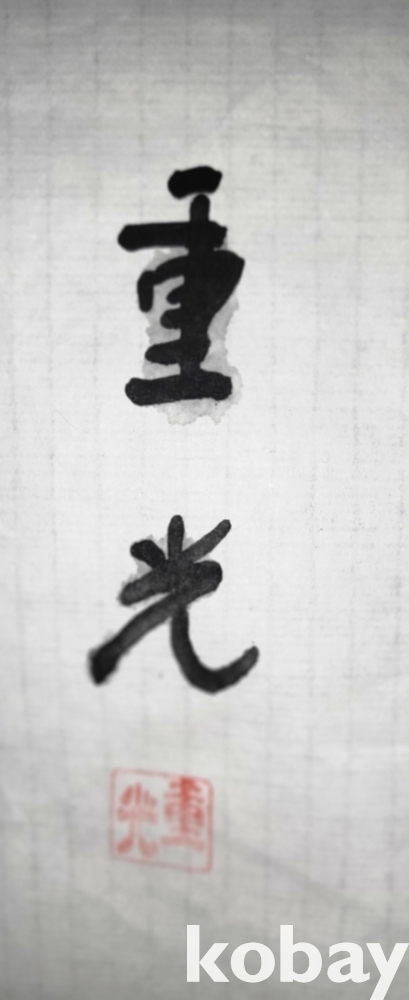 重光
重光
kobay